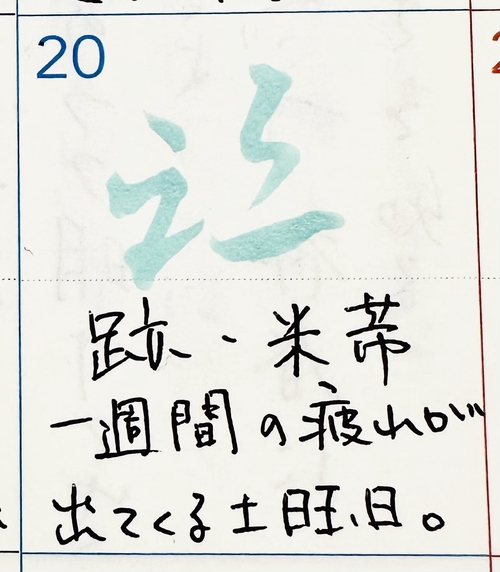 20
跡
跡・米芾
一週間の疲れが
出てくる土曜日。